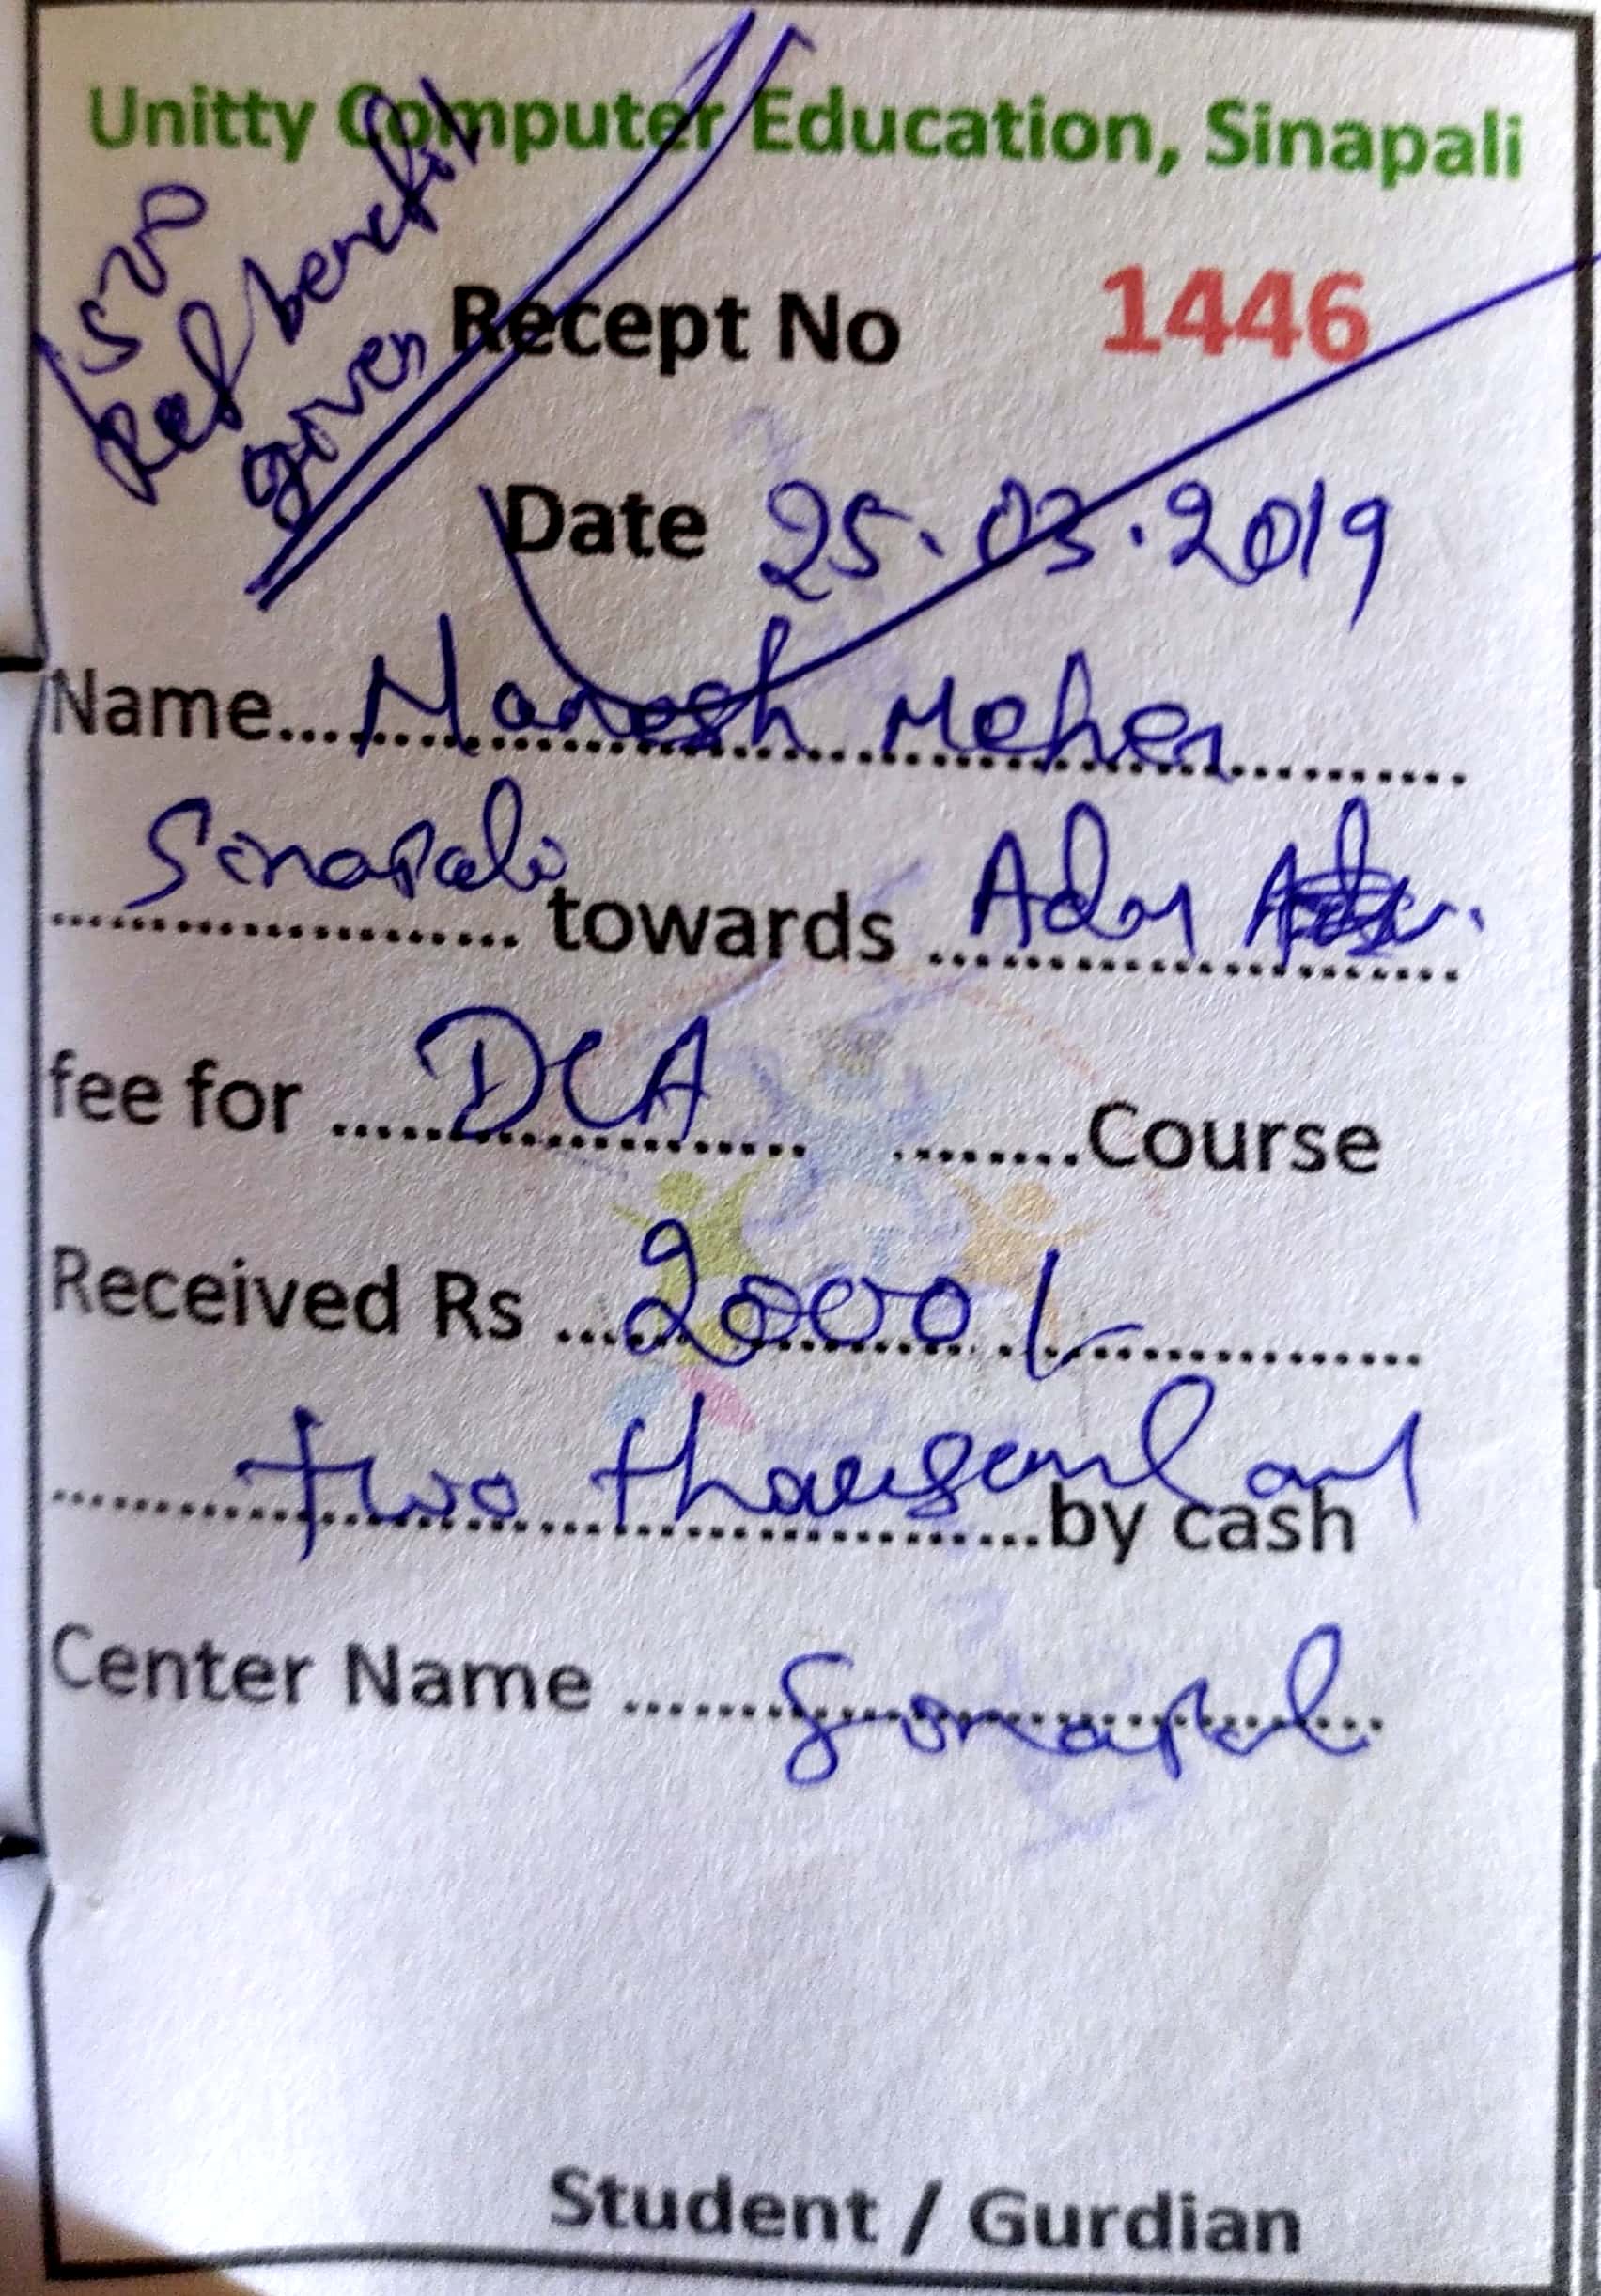 Unitty Computer Education, Sinapali
500
Ref benefit
given
Recept No 1446
Date 25.03.2019
Name... Manesh Meher
Sinapali towards Adm
fee for ..... DCA ........Course
Received Rs ... 2000/-
two thousand only by cash
Center Name ....... Sinapali
Student / Gurdian